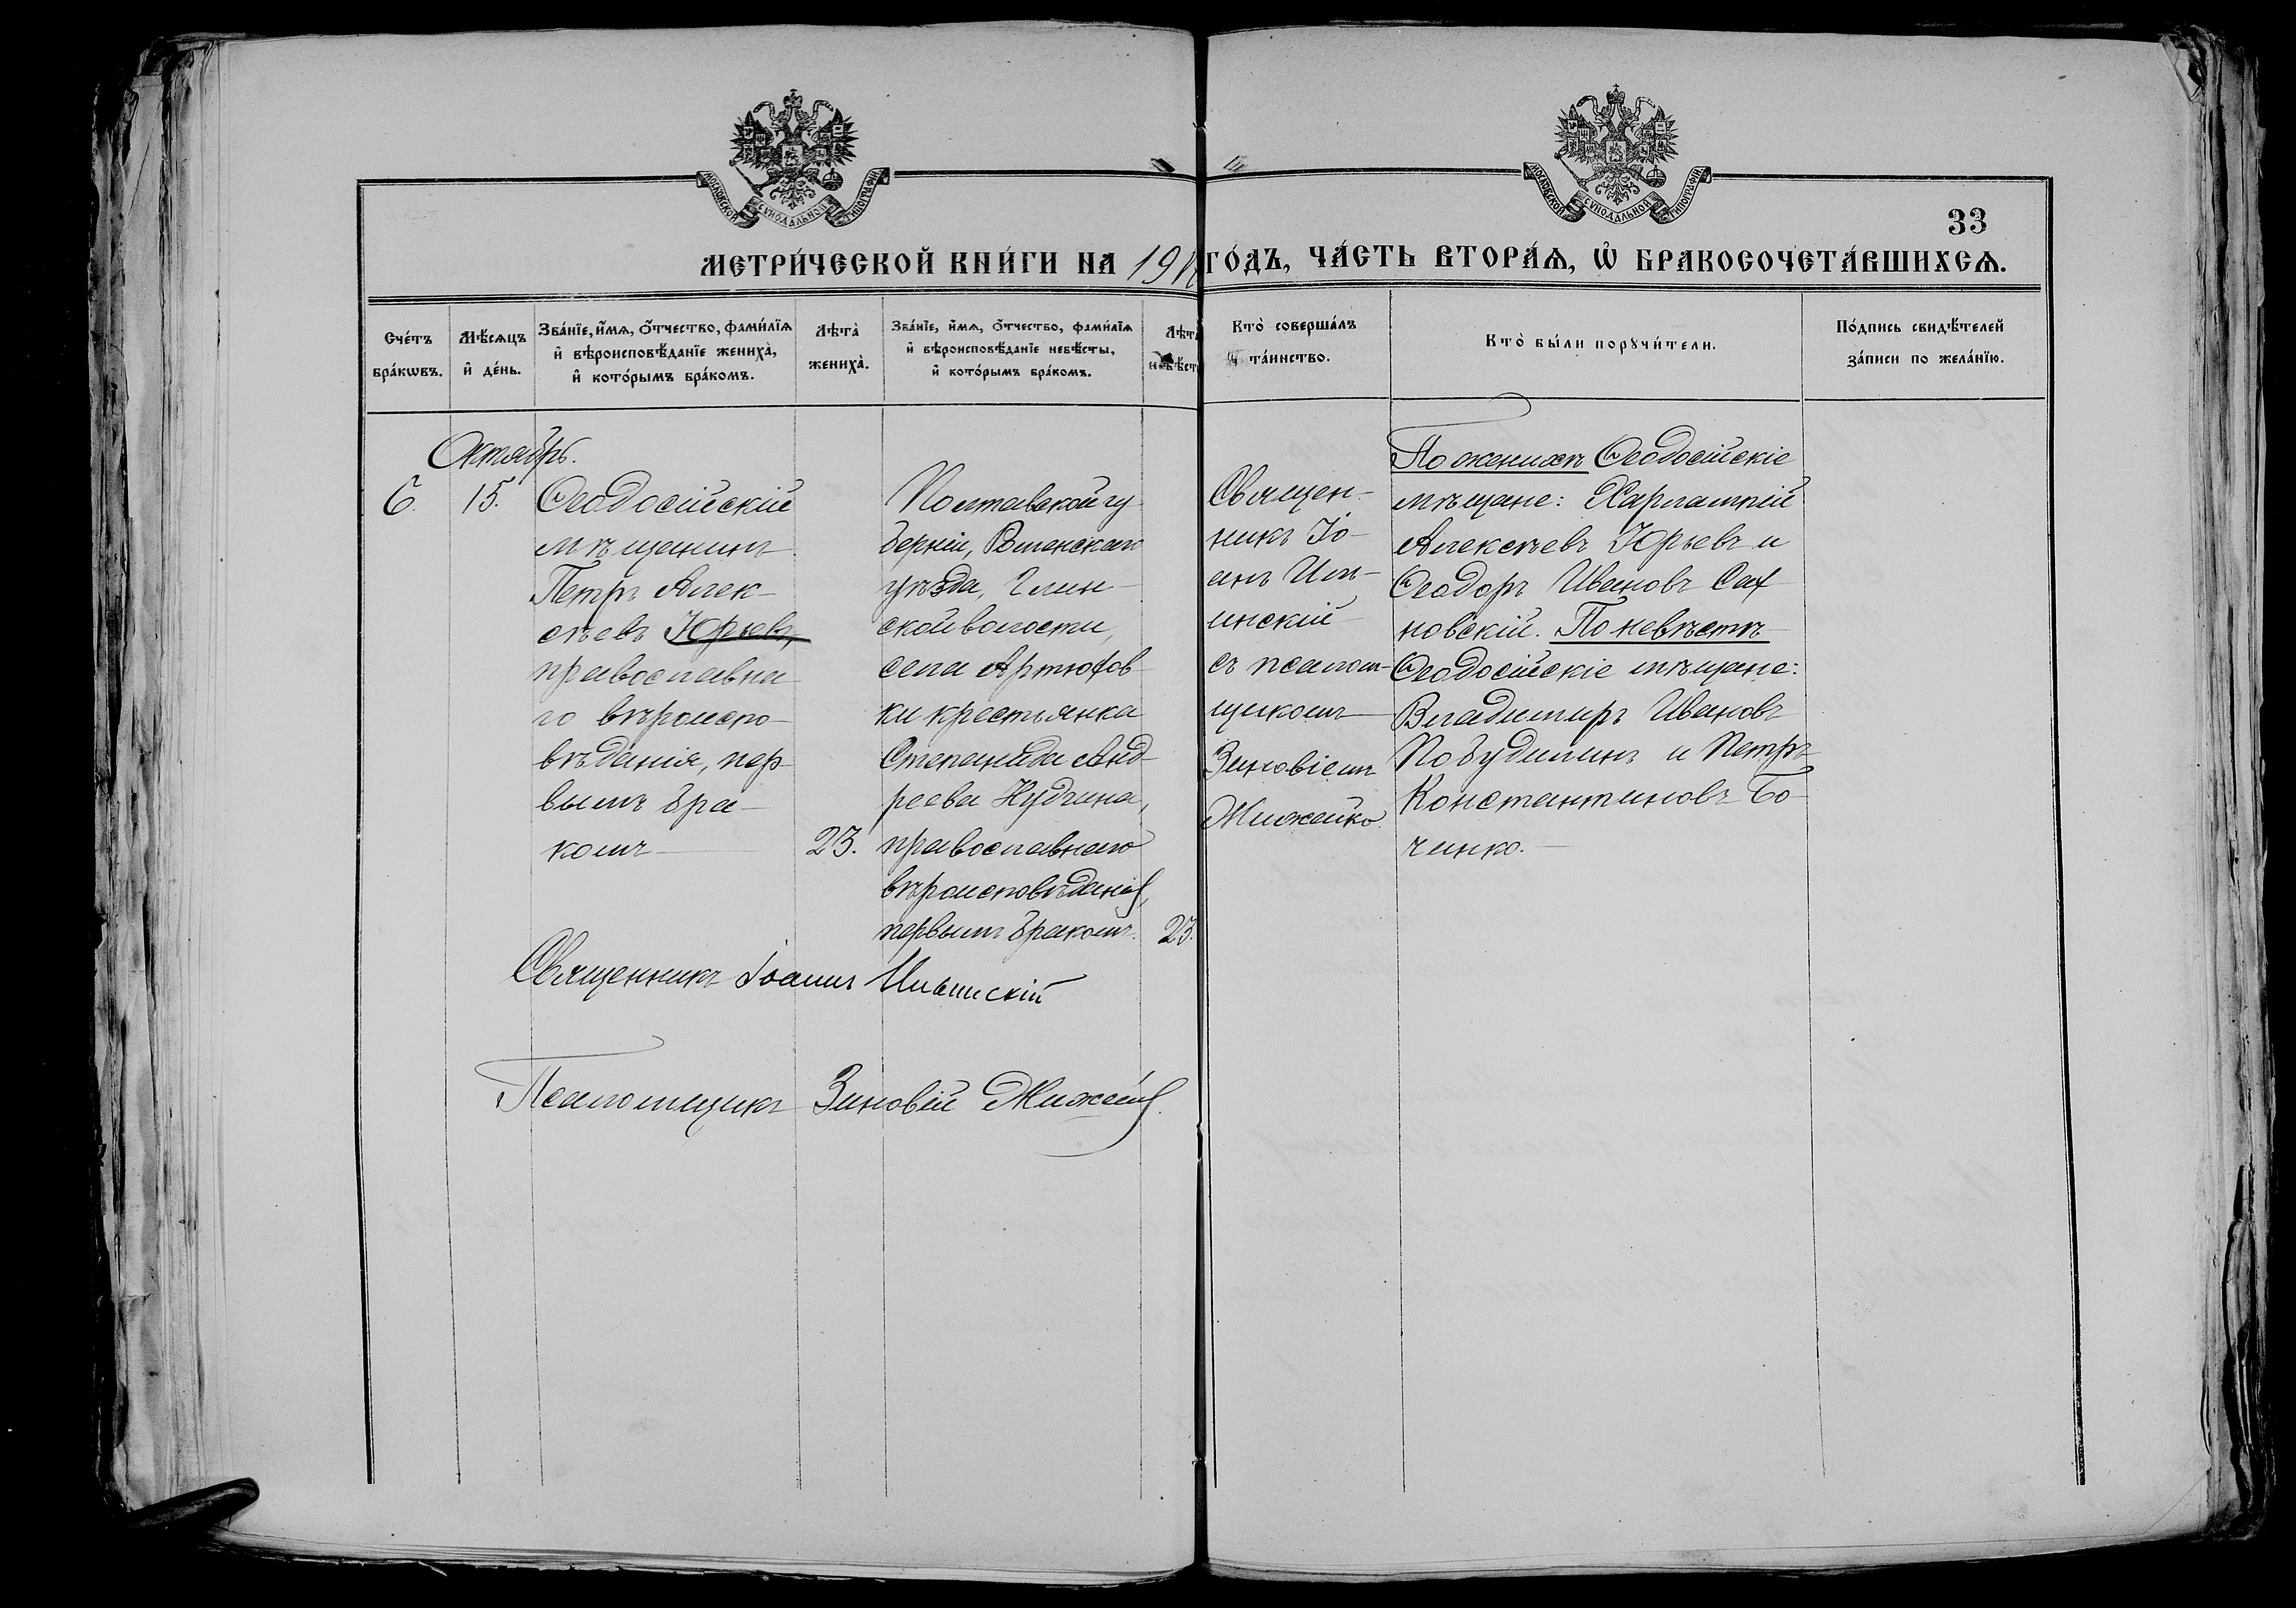 МОСКОВСКОЙ СѴНОДАЛЬНОЙ ТИПОГРАФІИ
МОСКОВСКОЙ СѴНОДАЛЬНОЙ ТИПОГРАФІИ
33
МЕТРИ́ЧЕСКОЙ КНИ́ГИ НА 191 ГО́ДЪ, ЧА́СТЬ ВТОРА́Ѧ, Ѡ҆ БРАКОСОЧЕТА́ВШИХСѦ.
Сче́тъ
бра́кѡвъ.
Мѣ́сѧцъ
и҆ де́нь.
Зва́нїе, и҆́мѧ, ѻ҆́тчество, фами́лїѧ
и҆ вѣроисповѣ́данїе жениха̀,
и҆ кото́рымъ бра́комъ.
Лѣта̀
жениха̀.
Зва́нїе, и҆́мѧ, ѻ҆́тчество, фами́лїѧ
и҆ вѣроисповѣ́данїе невѣ́сты,
и҆ кото́рымъ бра́комъ.
Лѣта
невѣст
Кто̀ соверша́лъ
та́инство.
Кто̀ бы́ли порꙋчи́тели.
По́дпись свидѣ́телей
за́писи по жела́нїю.
Октябрь.
6.
15.
Ѳеодосійскій
мѣщанинъ
Петръ Алек-
сѣевъ Юрьевъ,
православна
го вѣроиспо-
вѣданія, пер
вымъ бра-
комъ
23.
Полтавской гу
берніи, Роменскаго
уѣзда, Глин-
ской волости,
села Артюхов-
ки крестьянка
Степанида Анд-
реева Нудчина,
православнаго
вѣроисповѣданія,
первымъ бракомъ.
23.
Священ-
никъ Іо-
анъ Иль-
инскій
съ псалом-
щикомъ
Зиновіемъ
Жижейко
По женихѣ Ѳеодосійскіе
мѣщане: Харлампій
Алексѣевъ Юрьевъ и
Ѳеодоръ Ивановъ Сах
новскій. По невѣстѣ
Ѳеодосійскіе мѣщане:
Владимиръ Ивановъ
Побудилинъ и Петръ
Константиновъ Бо-
ченко.
Священникъ Іоаннъ Ильинскій
Псаломщикъ Зиновій